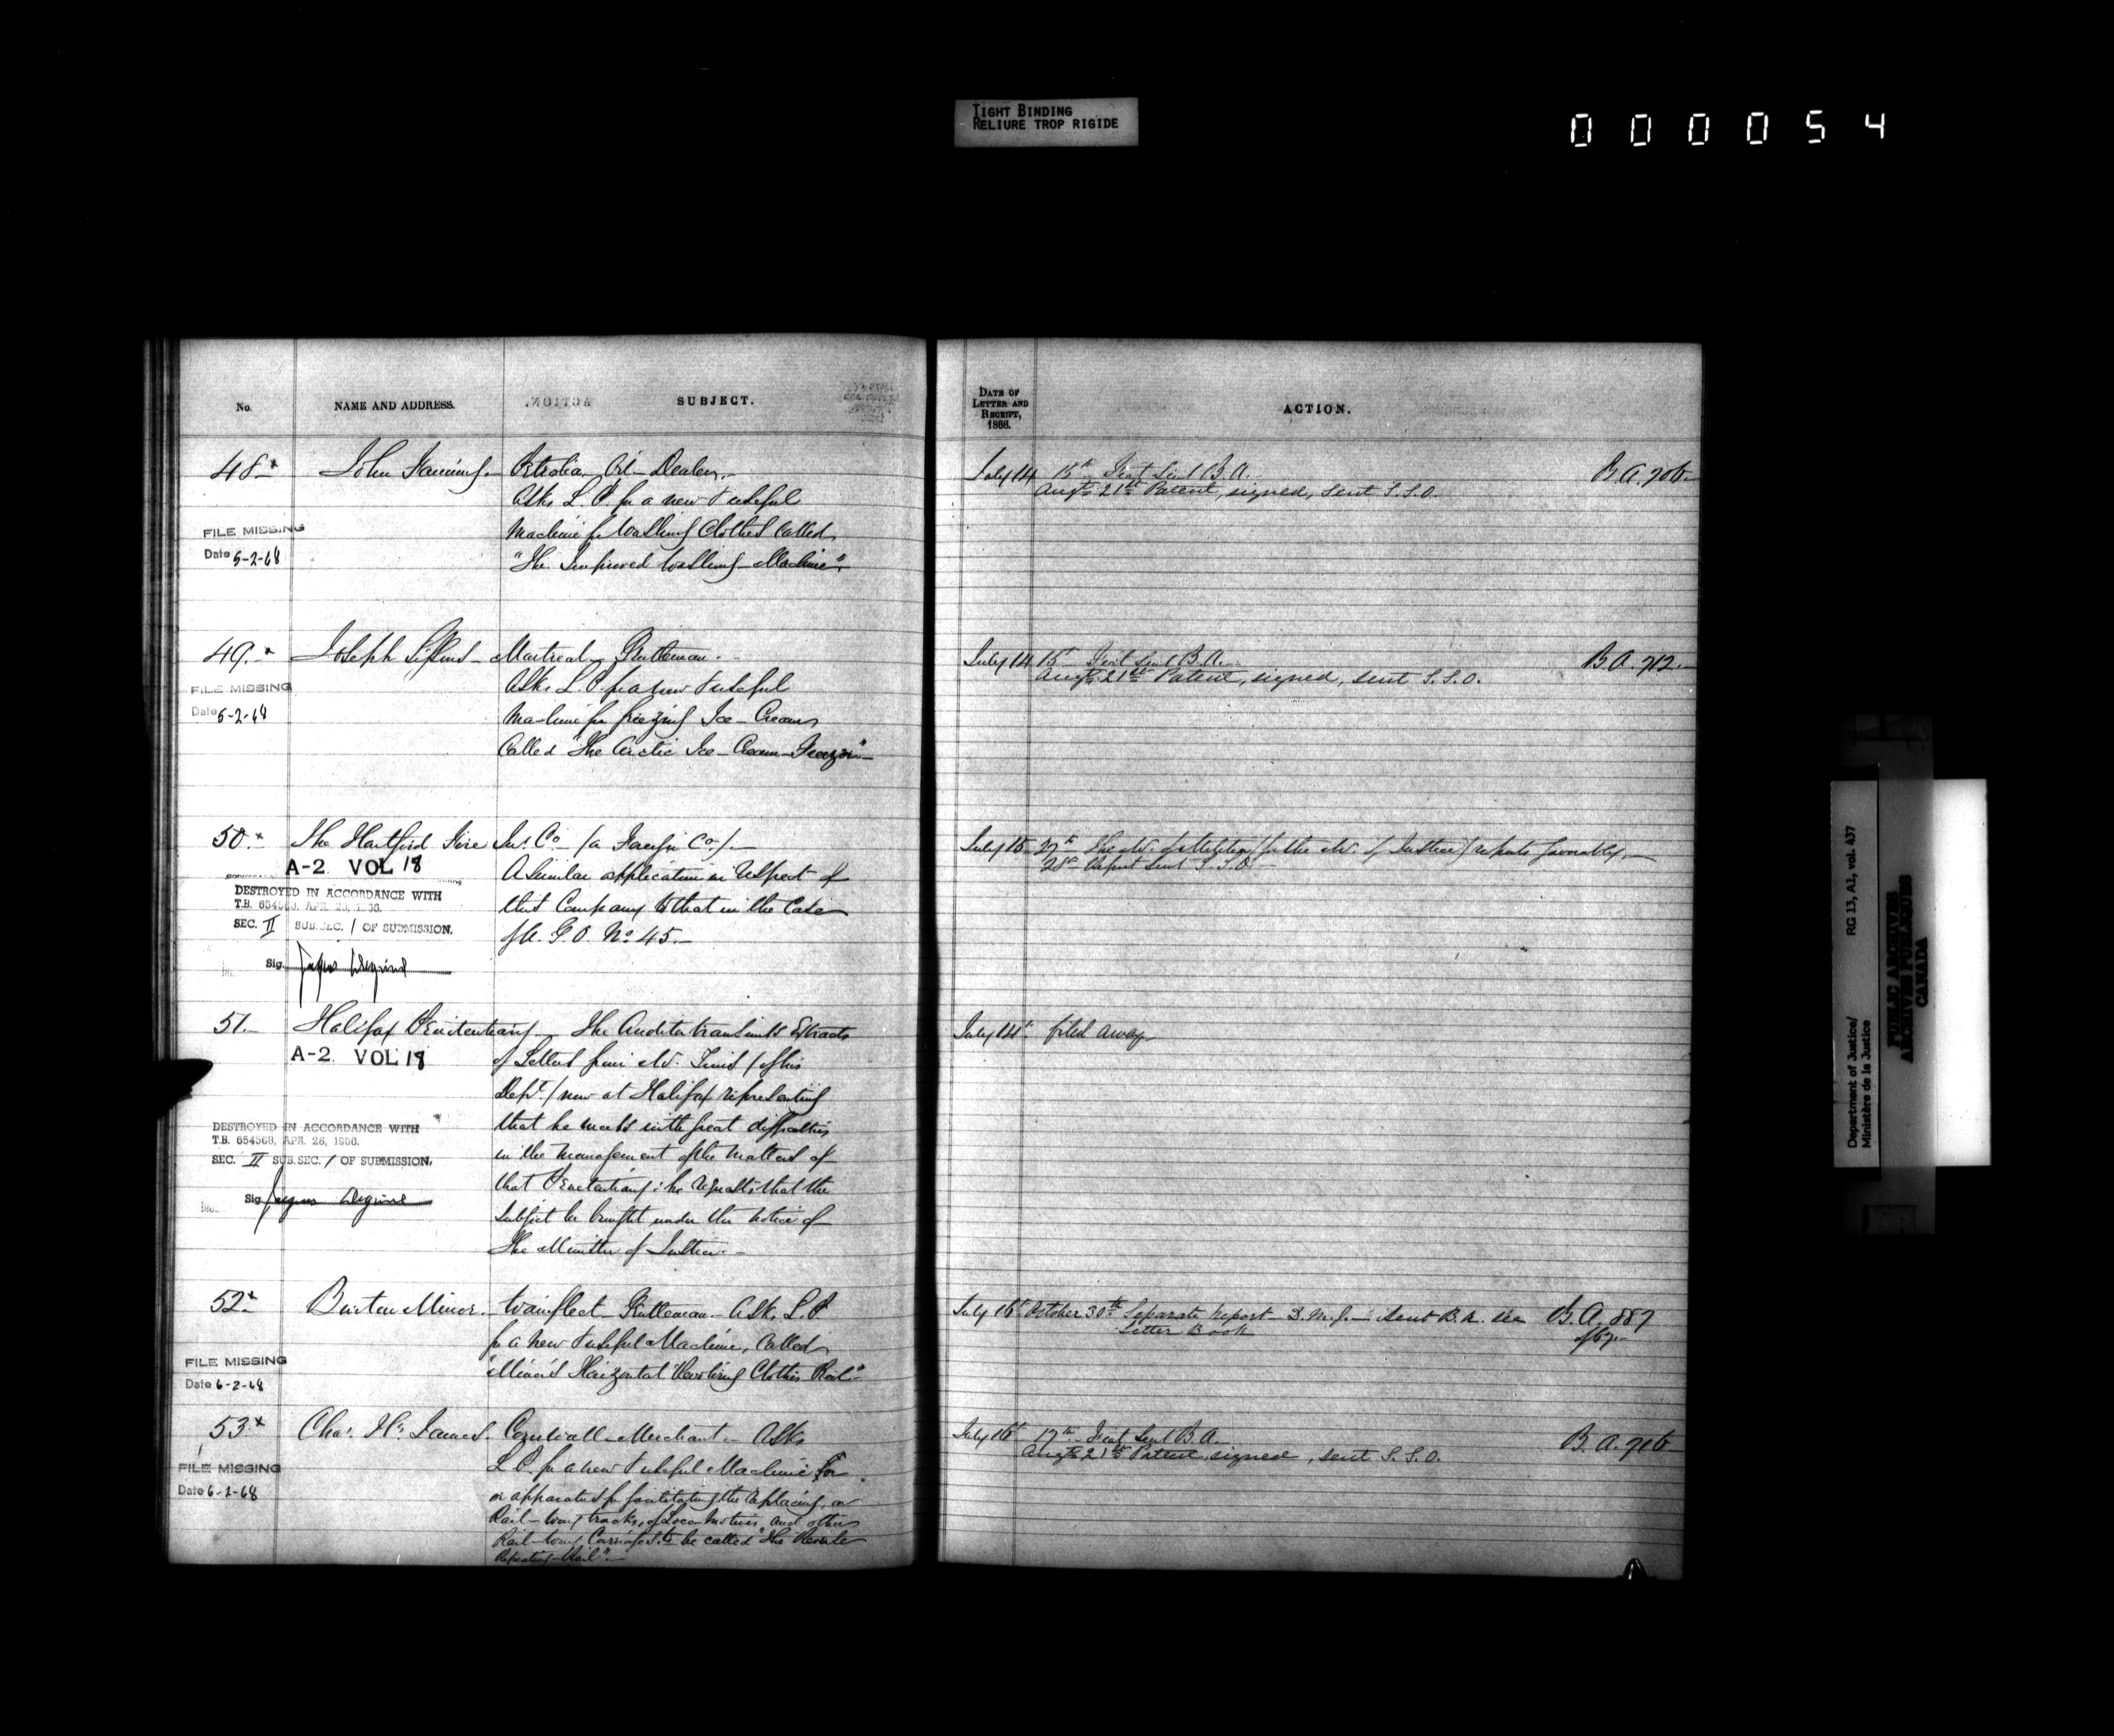 TIGHT BINDING
RELIURE TROP RIGIDE
000054
No.
NAME AND ADDRESS.
SUBJECT.
DATE OF
LETTER AND
RECEIPT,
1868.
ACTION.
48 x
John
Petrolia, Oil-Dealer,
July 14
15th Sent B.A.
B.A. 706
Augt. 21st Patent, signed, sent S.S.O.
Asks L.P. for a new & useful
Machine for Washing Clothes called
"The Improved Washing-Machine".
FILE MISSING
Date 5-2-68
49. x
Joseph
Montreal, Gentleman.
July 14
15 Sent B.A.
B.A. 712.
Augt. 21st Patent, signed, sent S.S.O.
Asks L.P. for a new & useful
Machine for freezing Ice-Cream
Called "The Arctic Ice-Cream-Freezer"
FILE MISSING
Date 5-2-68
50. x
The Hartford Fire Ins. Co (a Foreign Co.)
July 15
27th The Mr. of Militia (for the Mr. of Justice) reports favorably.
28 Report sent S.S.O.
A Similar application in respect of
that Company to that in the Case
of A.G.O. No. 45.
A-2 VOL 18
DESTROYED IN ACCORDANCE WITH
T.B. 654568, APR. 28, 1966.
SEC. II SUB.SEC. 1 OF SUBMISSION.
Sig.
51.
Halifax Penitentiary
The Auditor transmits Extracts
July 14th
filed away
of Letters from Mr. (of his
Dept.) now at Halifax representing
that he meets with great difficulties
in the management of the matters of
that Penitentiary: he requests that the
subject be brought under the notice of
the Minister of Justice.
A-2 VOL 18
DESTROYED IN ACCORDANCE WITH
T.B. 654568, APR. 28, 1966.
SEC. II SUB.SEC. 1 OF SUBMISSION.
Sig.
52 x
Burton Minor.
Wainfleet, Gentleman. Asks L.P.
July 16
October 30th Separate report D.M.J. Sent B.A. see
Letter Book
B.A. 887
of 67.
for a new & useful Machine, called
"Minor's Horizontal Revolving Clothes Rail"
FILE MISSING
Date 6-2-68
53 x
Chas. H. James.
Cornwall Merchant. Asks
July 16
17th Sent B.A.
B.A. 716
Augt. 21st Patent, signed, sent S.S.O.
L.P. for a new & useful Machine for
or apparatus for facilitating the replacing, on
Rail-way tracks, of Loco-Motives and other
Rail-way Carriages to be called "The
Repeating-Rail".
FILE MISSING
Date 6-2-68
Department of Justice/
Ministère de la Justice
RG 13, A1, vol. 437
PUBLIC ARCHIVES
ARCHIVES PUBLIQUES
CANADA